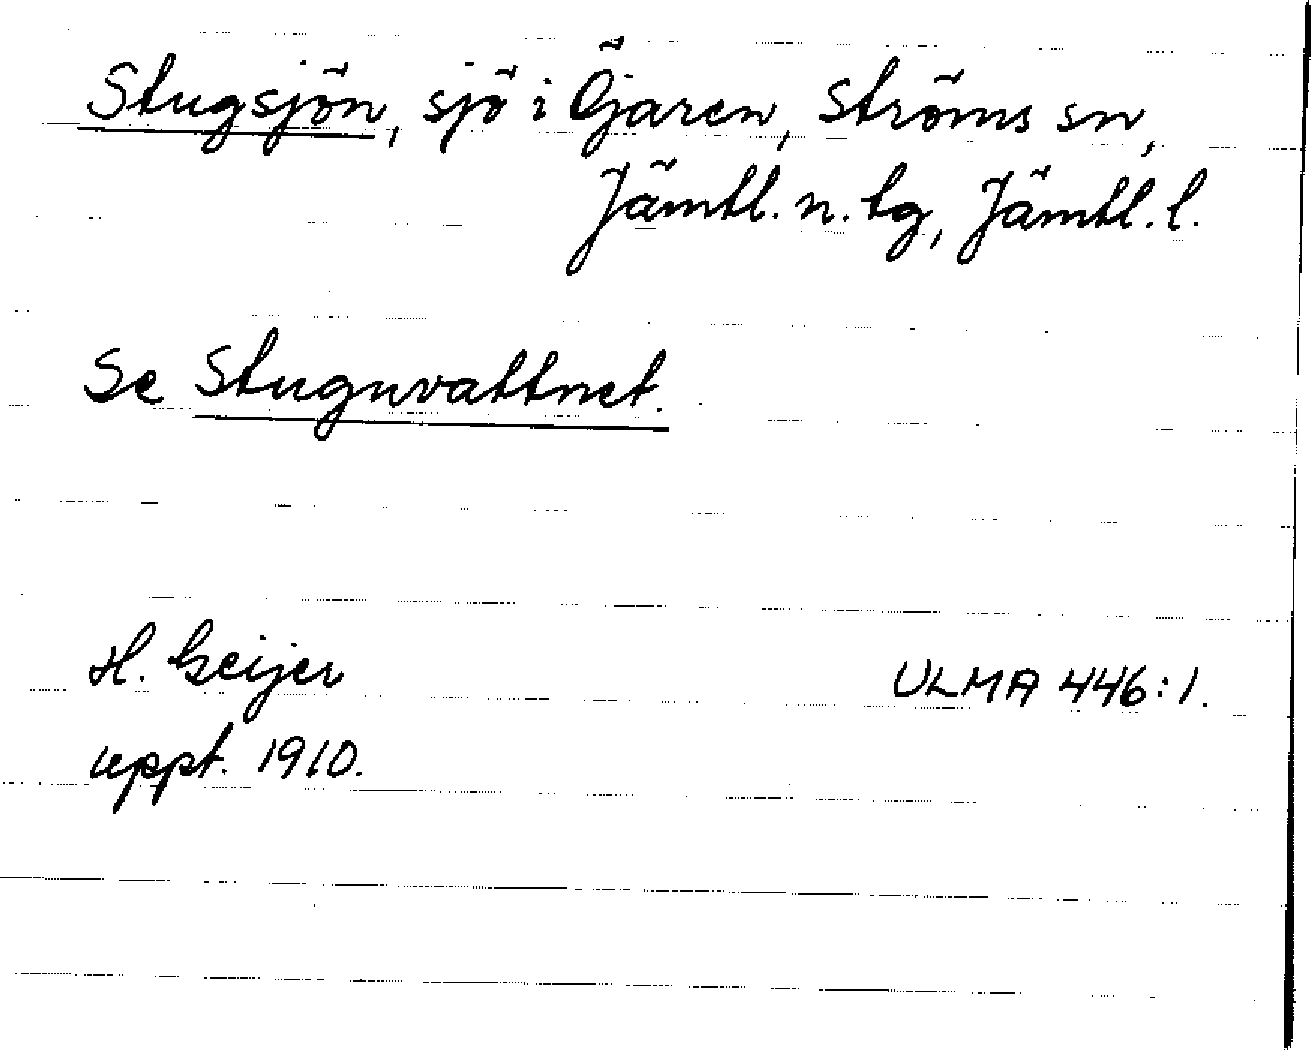 Stugsjön, sjö i Öjaren, Ströms sn,
Jämtl. n. tg, Jämtl. l.
Se Stuguvattnet.
H. Geijer
ULMA 446:1.
uppt. 1910.